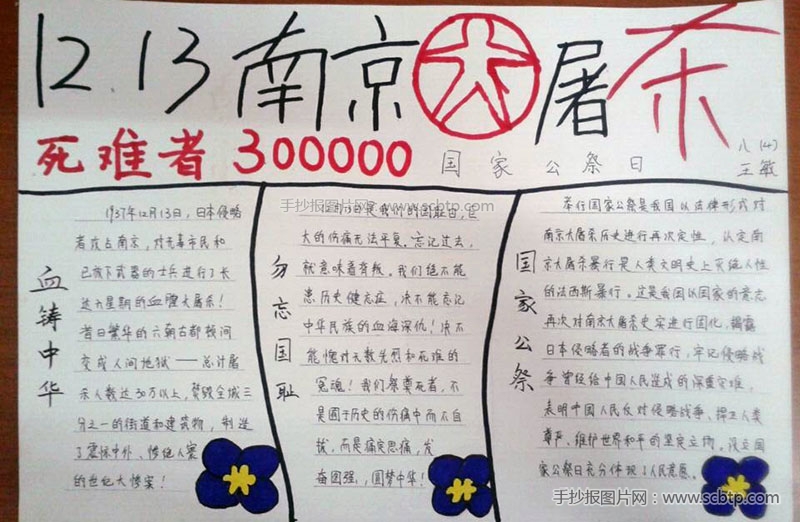 12.13 南京大屠杀
死难者 300000 国家公祭日
八(4)
王敏
血铸中华
1937年12月13日,日本侵略
者攻占南京,对无辜市民和
已放下武器的士兵进行了长
达六星期的血腥大屠杀!
昔日繁华的六朝古都顿间
变成人间地狱——总计屠
杀人数达30万以上,焚毁全城三
分之一的街道和建筑物,制造
了震惊中外、惨绝人寰
的世纪大惨案!
勿忘国耻
12月13日是我们的国耻日,巨
大的伤痛无法平复。忘记过去,
就意味着背叛。我们绝不能
患历史健忘症,决不能忘记
中华民族的血海深仇!决不
能愧对无数先烈和死难的
冤魂!我们祭奠死者,不
是囿于历史的伤痛中而不自
拔,而是痛定思痛,发
奋图强,圆梦中华!
国家公祭
举行国家公祭是我国以法律形式对
南京大屠杀历史进行再次定性,认定南
京大屠杀暴行是人类文明史上灭绝人性
的法西斯暴行。这是我国以国家的意志
再次对南京大屠杀史实进行固化,揭露
日本侵略者的战争罪行,牢记侵略战
争曾经给中国人民造成的深重灾难,
表明中国人民反对侵略战争、捍卫人类
尊严、维护世界和平的坚定立场。设立国
家公祭日充分体现了人民意愿。
手抄报图片网 www.scbtp.com
手抄报图片网:www.scbtp.com